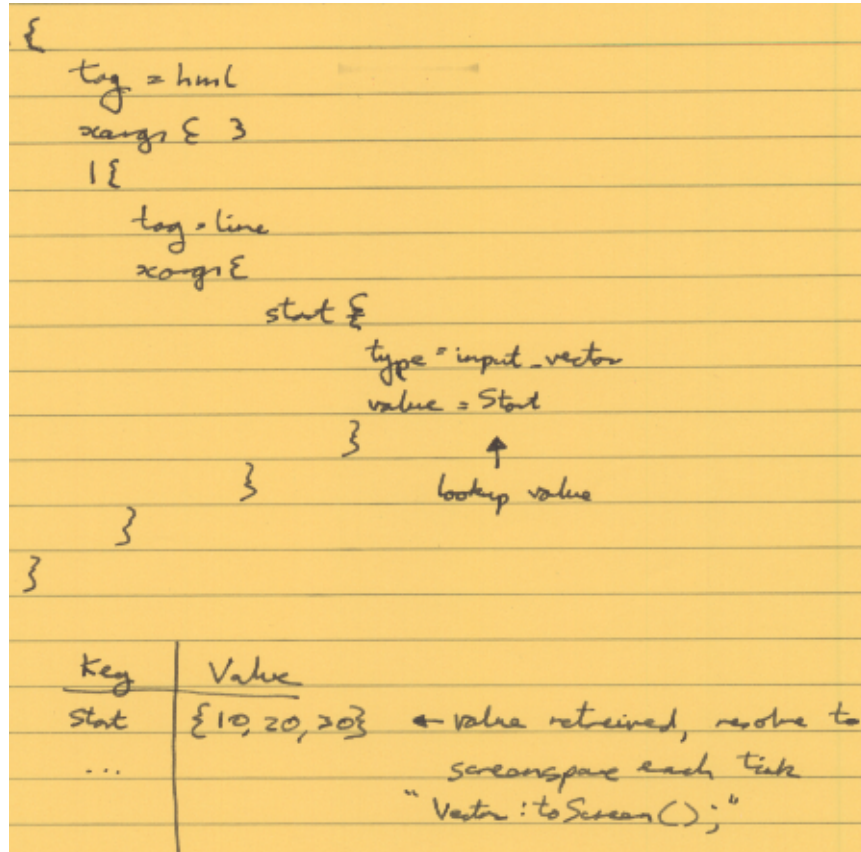 {
tag = hml
xargs { }
1 {
tag = line
xargs {
start {
type = input_vector
value = Start
}
↑
}
lookup value
}
}
Key Value
Start {10, 20, 30} ← value retreived, resolve to
... screenspace each tick
"Vector:toScreen();"